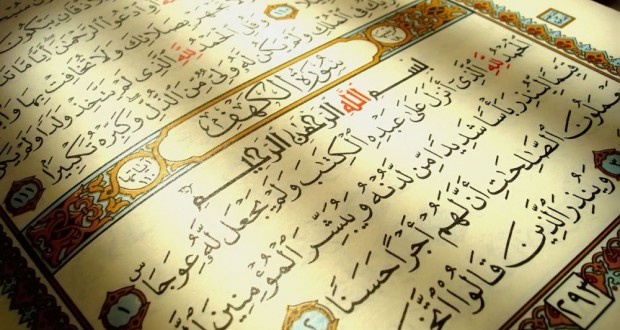 الرَّحْمَٰنَ أَيًّا مَّا
بِصَلَاتِكَ وَلَا تُخَافِتْ بِهَا وَ
١١٠ الْحَمْدُ لِلَّهِ الَّذِي لَمْ يَتَّخِذْ وَلَدًا وَلَمْ يَكُن
وَلَمْ يَكُن لَّهُ وَلِيٌّ مِّنَ الذُّلِّ وَكَبِّرْهُ تَكْبِيرًا ١١١
سُورَةُ الْكَهْفِ
بِسْمِ اللَّهِ الرَّحْمَٰنِ الرَّحِيمِ
الْحَمْدُ لِلَّهِ الَّذِي أَنزَلَ عَلَىٰ عَبْدِهِ الْكِتَٰبَ وَلَمْ يَجْعَل لَّهُ عِوَجَاۜ ١
قَيِّمًا لِّيُنذِرَ بَأْسًا شَدِيدًا مِّن لَّدُنْهُ وَيُبَشِّرَ الْمُؤْمِنِينَ
يَعْمَلُونَ الصَّٰلِحَٰتِ أَنَّ لَهُمْ أَجْرًا حَسَنًا ٢
٣ وَيُنذِرَ الَّذِينَ قَالُوا اتَّخَذَ
٢٩٣